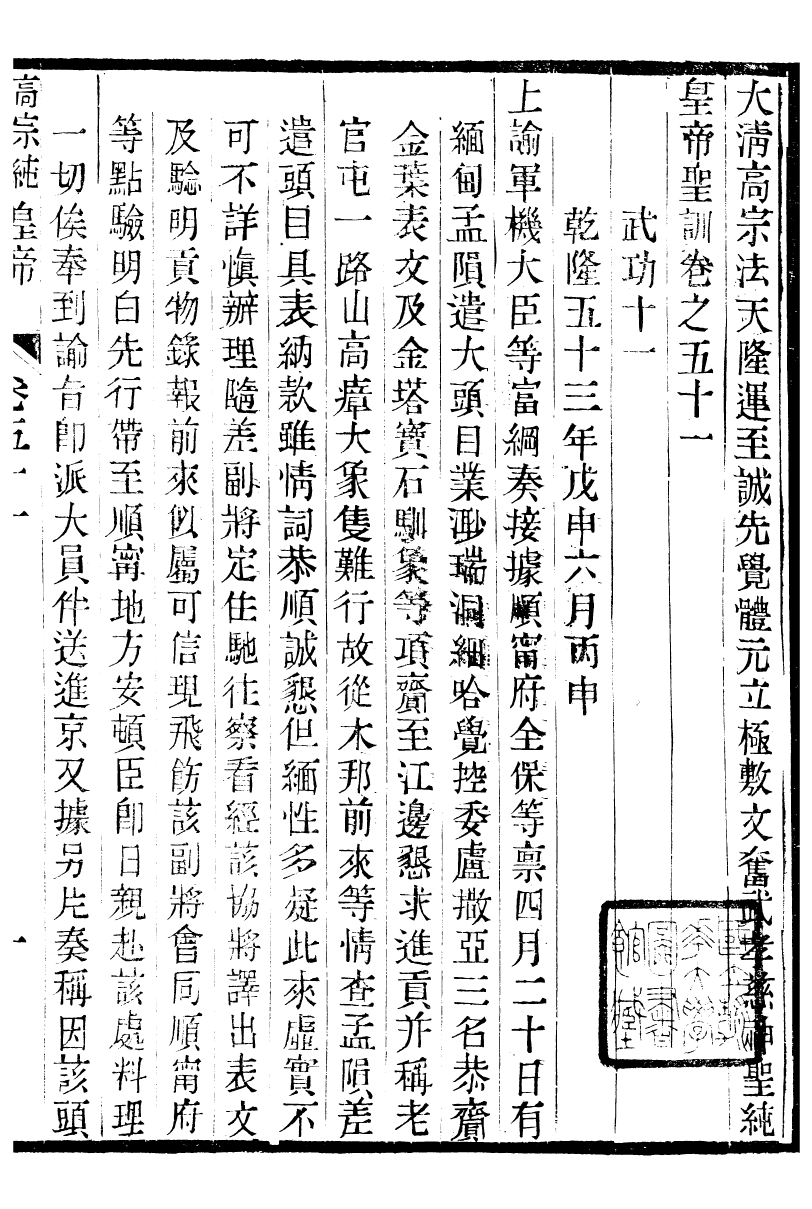 大清高宗法天隆運至誠先覺體元立極敷文奮武孝慈神聖純
皇帝聖訓卷之五十一
武功十一
乾隆五十三年戊申六月丙申
上諭軍機大臣等富綱奏接據順甯府全保等稟四月二十日有
緬甸孟隕遣大頭目業渺瑞洞細哈覺控委盧撒亞三名恭齎
金葉表文及金塔寶石馴象等項齎至江邊懇求進貢并稱老
官屯一路山高瘴大象隻難行故從木邦前來等情查孟隕差
遣頭目具表納款雖情詞恭順誠懇但緬性多疑此來虛實不
可不詳慎辦理隨差副將定住馳往察看經該協將譯出表文
及驗明貢物錄報前來似屬可信現飛飭該副將會同順甯府
等點驗明白先行帶至順甯地方安頓臣卽日親赴該處料理
一切俟奉到諭旨卽派大員伴送進京又據另片奏稱因該頭
高宗純皇帝 卷五十一 一